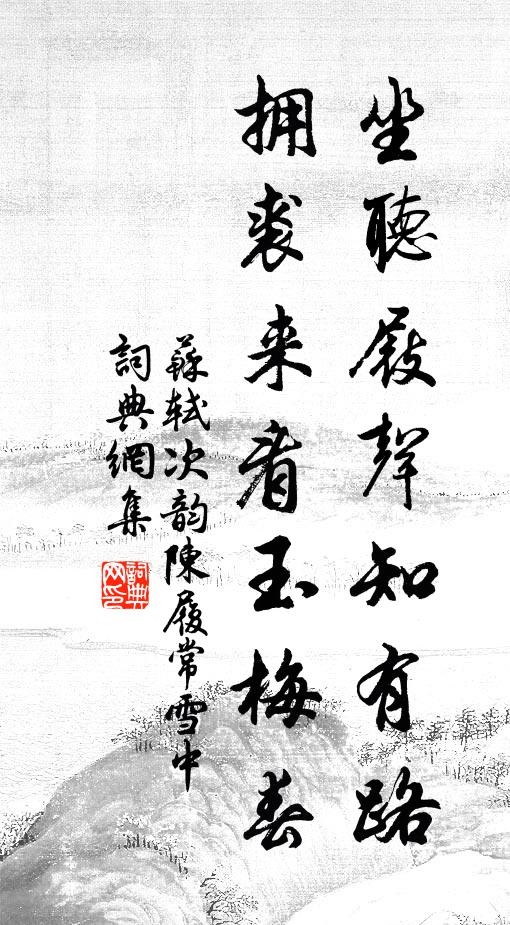 坐聽屐聲知有路
擁裘来看玉梅春
蘇軾次韵陳履常雪中
詞典網集
詞典网印